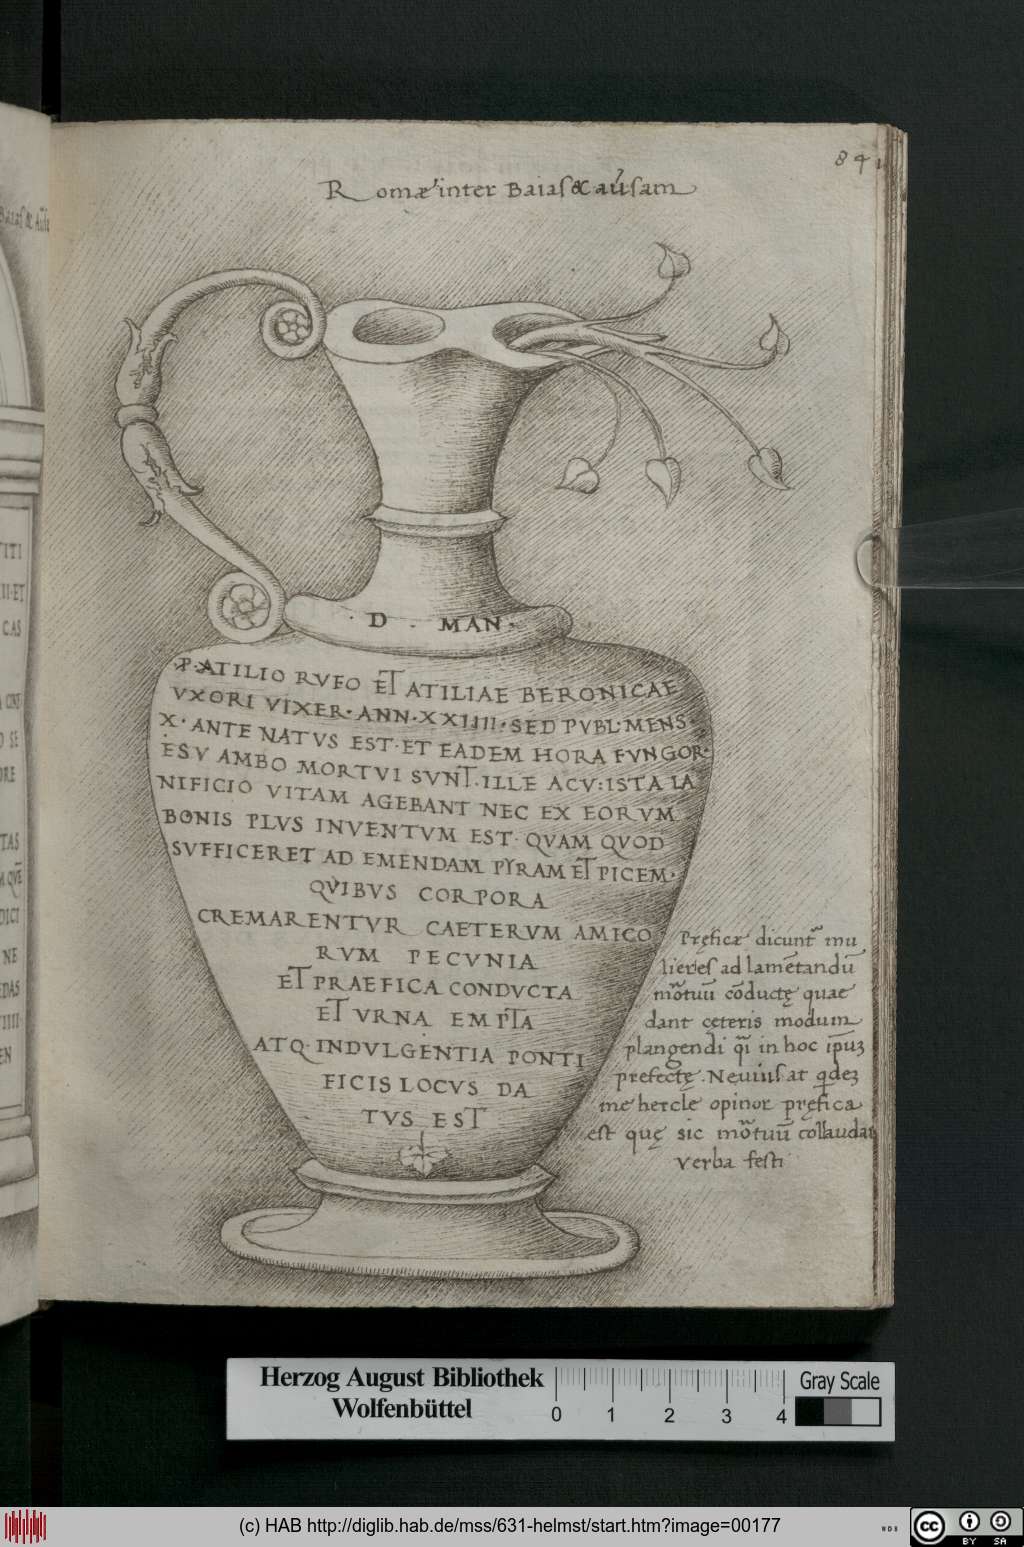 84
Romæ inter Baias & ausam
· D · MAN ·
P·ATILIO RVFO ET ATILIAE BERONICAE
VXORI VIXER·ANN·XXIIII·SED PVBL·MENS·
X·ANTE NATVS EST·ET EADEM HORA FVNGOR·
ESV AMBO MORTVI SVNT·ILLE ACV:ISTA LA
NIFICIO VITAM AGEBANT NEC EX EORVM
BONIS PLVS INVENTVM EST·QVAM QVOD
SVFFICERET AD EMENDAM PYRAM ET PICEM·
QVIBVS CORPORA
CREMARENTVR CAETERVM AMICO
RVM PECVNIA
ET PRAEFICA CONDVCTA
ET VRNA EMPTA
ATQ·INDVLGENTIA PONTI
FICIS LOCVS DA
TVS EST
Pręficæ dicunt᷑ mu
lieres ad lamētandū
mo᷑tuū cōductę quae
dant cęteris modum
plangendi q̄i in hoc ip̄uꝫ
prefectę. Neuius at q̇deꝫ
me hercle opinor pręfica
est quę sic mo᷑tuū collaudat
verba festi
TITI
III·ET
CAS
Herzog August Bibliothek
Wolfenbüttel
0 1 2 3 4
Gray Scale
(c) HAB http://diglib.hab.de/mss/631-helmst/start.htm?image=00177
cc BY SA